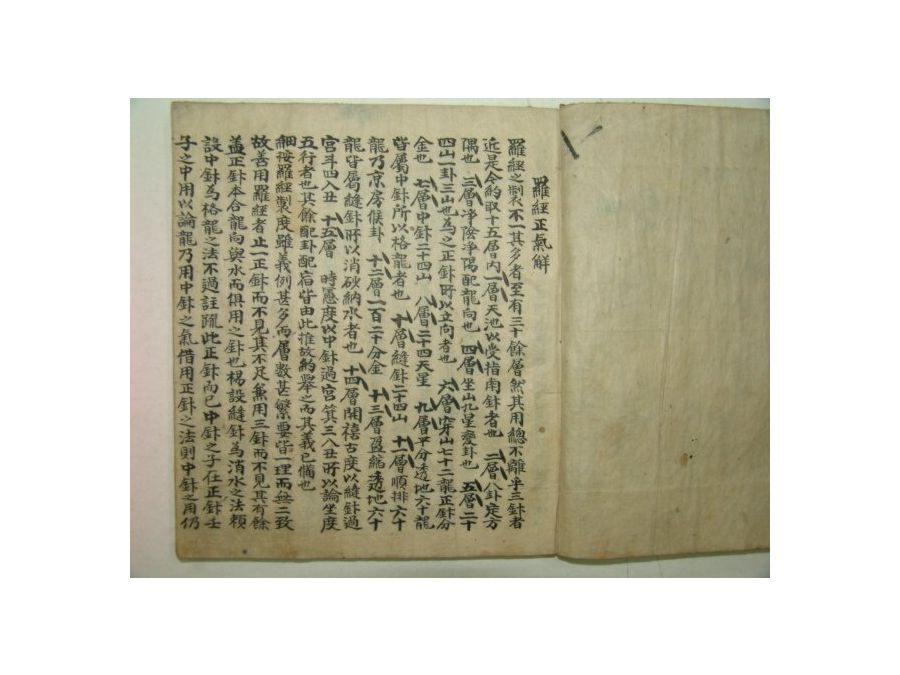 羅經正氣解
羅經之製不一其多者至有三十餘層然其用總不離乎三針者
近是今約取十五層內一層天池以受指南針者也 二層八卦定方
隅也 三層淨陰淨陽配龍向也 四層坐山九星變卦也 五層二十
四山一卦三山也爲之正針所以立向者也 六層穿山七十二龍正針分
金也 七層中針二十四山 八層二十四天星 九層平分透地六十龍
皆屬中針所以格龍者也 十層縫針二十四山 十一層順排六十
龍乃京房候卦 十二層一百二十分金 十三層盈縮透地六十
龍皆屬縫針所以消砂納水者也 十四層開禧古度以縫針過
宮斗四入丑 十五層 時憲度以中針過宮箕三入丑所以論坐度
五行者也其餘配卦配宿皆由此推故約擧之而其義已備也
細按羅經製度雖義例甚多而層數甚繁要皆一理而無二致
故善用羅經者止一正針而不見其不足兼用三針而不見其有餘
盖正針本合龍向與水而俱用之針也楊設縫針爲消水之法賴
設中針爲格龍之法不過註疏此正針而已中針之子在正針壬
子之中用以論龍乃用中針之氣借用正針之法則中針之用仍